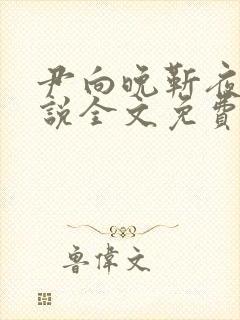 尹向晚靳夜
說全文免費
魯偉文